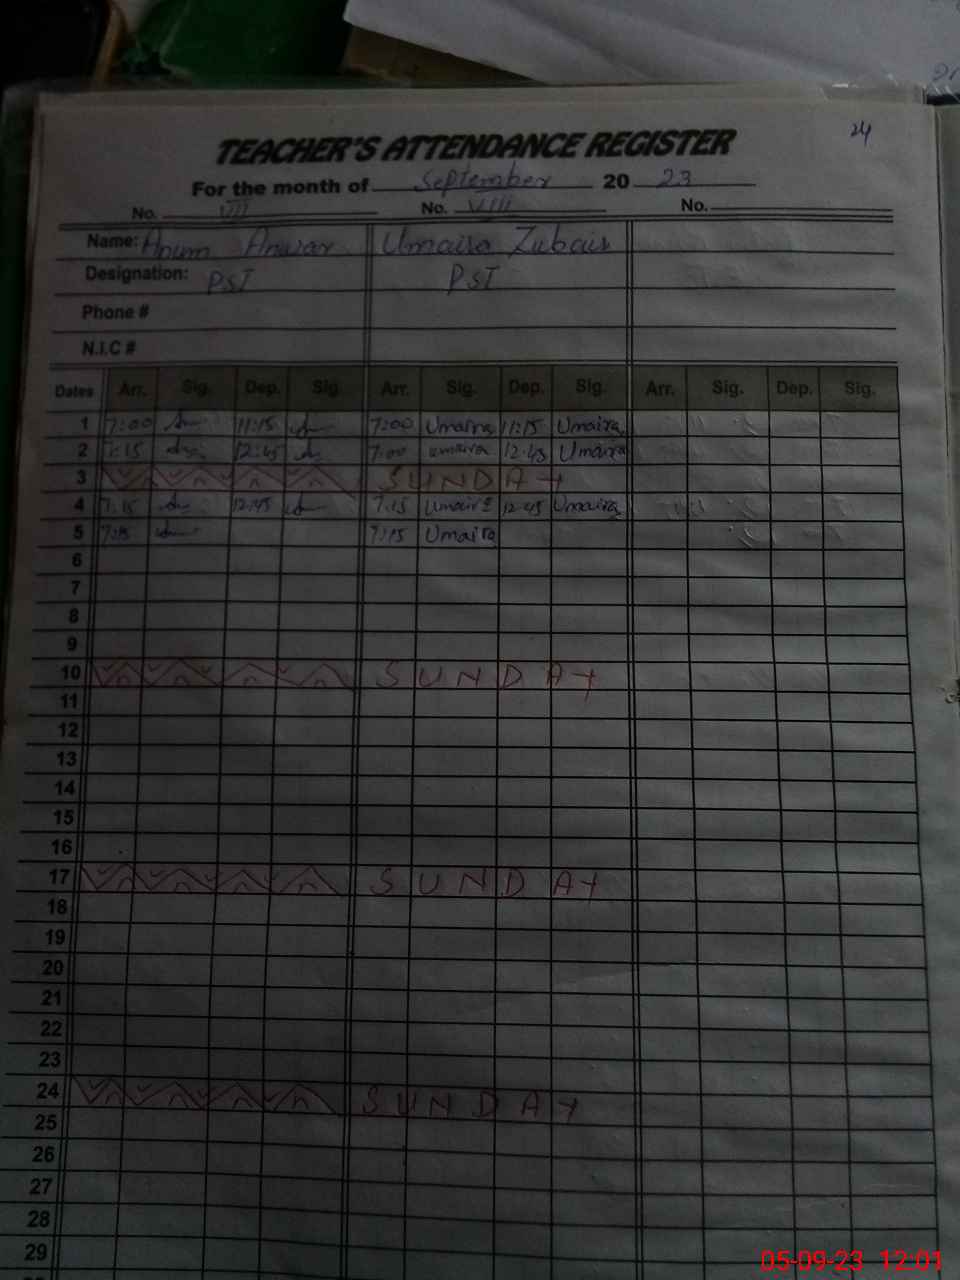 24
TEACHER'S ATTENDANCE REGISTER
For the month of September 20 23
No. VII No. VIII No.
Name: Anum Anwar Umaira Zubair
Designation: PST PST
Phone #
N.I.C #
Dates Arr. Sig. Dep. Sig. Arr. Sig. Dep. Sig. Arr. Sig. Dep. Sig.
1 7:00 11:15 7:00 Umaira 11:15 Umaira
2 7:15 12:45 7:00 umaira 12:45 Umaira
3 SUNDAY
4 7:15 12:45 7:15 Umaira 12:45 Umaira
5 7:15 7:15 Umaira
6
7
8
9
10 SUNDAY
11
12
13
14
15
16
17 SUNDAY
18
19
20
21
22
23
24 SUNDAY
25
26
27
28
29
05-09-23 12:01